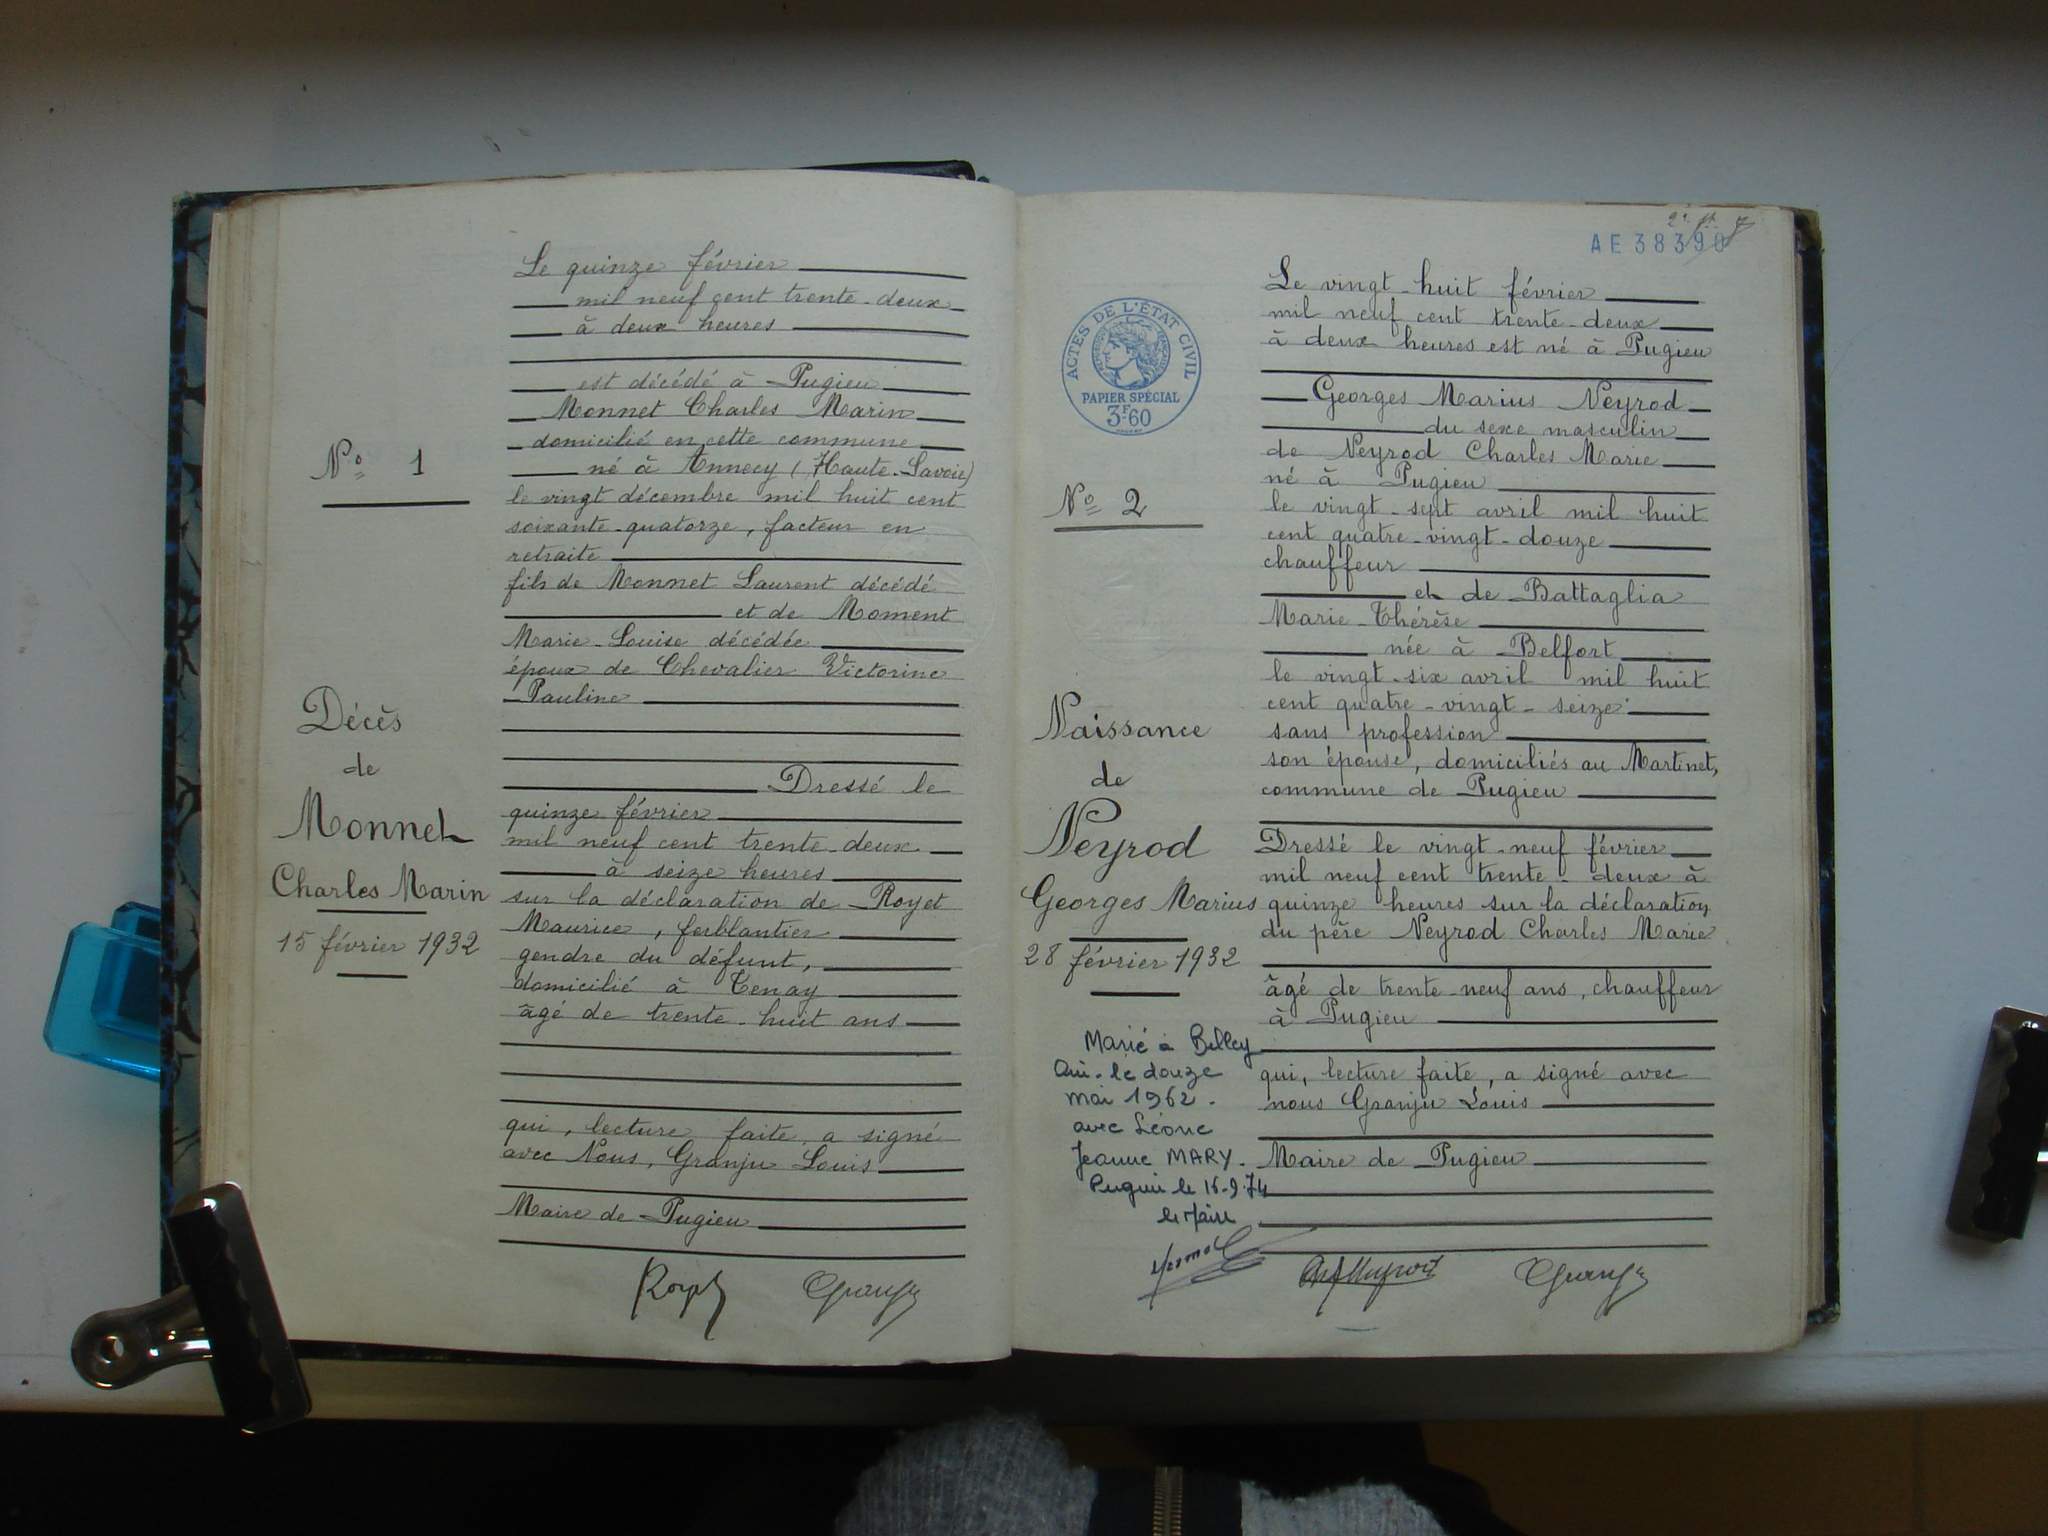 N° 1
Décès
de
Monnet
Charles Marin
15 février 1932
Le quinze février
mil neuf cent trente-deux
à deux heures
est décédé à Pugieu
Monnet Charles Marin
domicilié en cette commune
né à Annecy (Haute-Savoie)
le vingt décembre mil huit cent
soixante-quatorze, facteur en
retraite
fils de Monnet Laurent décédé
et de Moment
Marie-Louise décédée
époux de Chevalier Victorine
Pauline
Dressé le
quinze février
mil neuf cent trente-deux
à seize heures
sur la déclaration de Royet
Maurice, ferblantier
gendre du défunt,
domicilié à Tenay
âgé de trente-huit ans
qui, lecture faite, a signé
avec Nous, Granju Louis
Maire de Pugieu
AE 38390
ACTES DE L'ÉTAT CIVIL
RÉPUBLIQUE FRANÇAISE
PAPIER SPÉCIAL
3F.60
N° 2
Naissance
de
Neyrod
Georges Marius
28 février 1932
Marié à Belley
Ain. le douze
mai 1962.
avec Léone
Jeanne MARY.
Pugieu le 16-9-74
le Maire
Le vingt-huit février
mil neuf cent trente-deux
à deux heures est né à Pugieu
Georges Marius Neyrod
du sexe masculin
de Neyrod Charles Marie
né à Pugieu
le vingt-sept avril mil huit
cent quatre-vingt-douze
chauffeur
et de Battaglia
Marie-Thérèse
née à Belfort
le vingt-six avril mil huit
cent quatre-vingt-seize
sans profession
son épouse, domiciliés au Martinet,
commune de Pugieu
Dressé le vingt-neuf février
mil neuf cent trente-deux à
quinze heures sur la déclaration
du père Neyrod Charles Marie
âgé de trente-neuf ans, chauffeur
à Pugieu
qui, lecture faite, a signé avec
nous Granju Louis
Maire de Pugieu